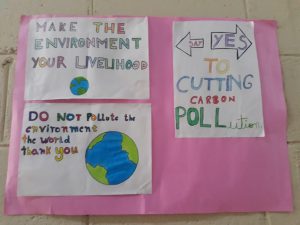 MAKE THE
ENVIRONMENT
YOUR LIVELIHOOD
DO NOT Pollute the
environment
the world
thank you
SAY YES
TO
CUTTING
CARBON
POLLution